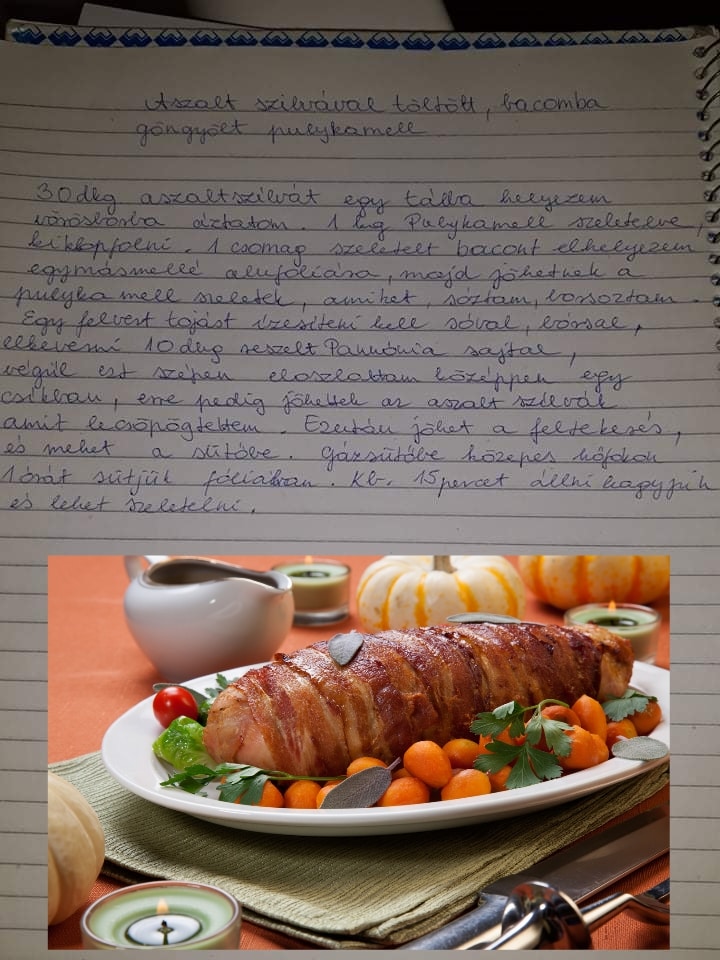 Aszalt szilvával töltött, bacomba
göngyölt pulykamell
30dkg aszaltszilvát egy tálba helyezem
vörösborba áztatom. 1 kg Pulykamell szeletelve,
kiklopfolni. 1 csomag szeletelt bacont elhelyezem
egymásmellé alufóliára, majd jöhetnek a
pulyka mell szeletek, amiket, sóztam, borsoztam.
Egy felvert tojást ízesíteni kell sóval, borsal,
elkeverni 10dkg reszelt Pannónia sajtal,
végül ezt szépen eloszlattam középpen egy
csíkban, erre pedig jöhettek az aszalt szilvák
amit lecsöpögtettem. Ezután jöhet a feltekerés,
és mehet a sütőbe. Gázsütőbe közepes hőfokon
1 órát sütjük fóliában. Kb. 15percet állni hagyjuk
és lehet szeletelni.